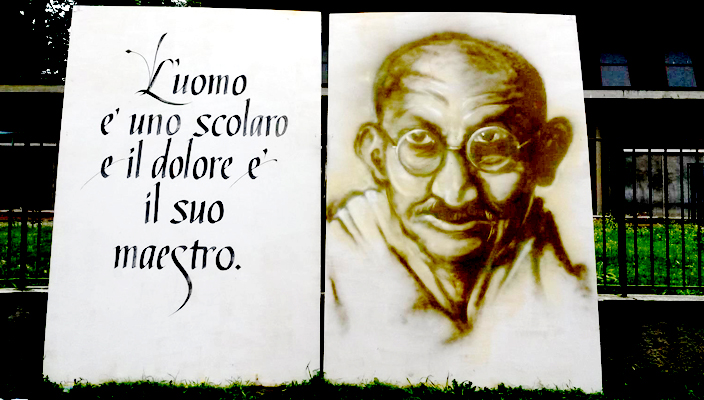 L'uomo
e' uno scolaro
e il dolore e'
il suo
maestro.